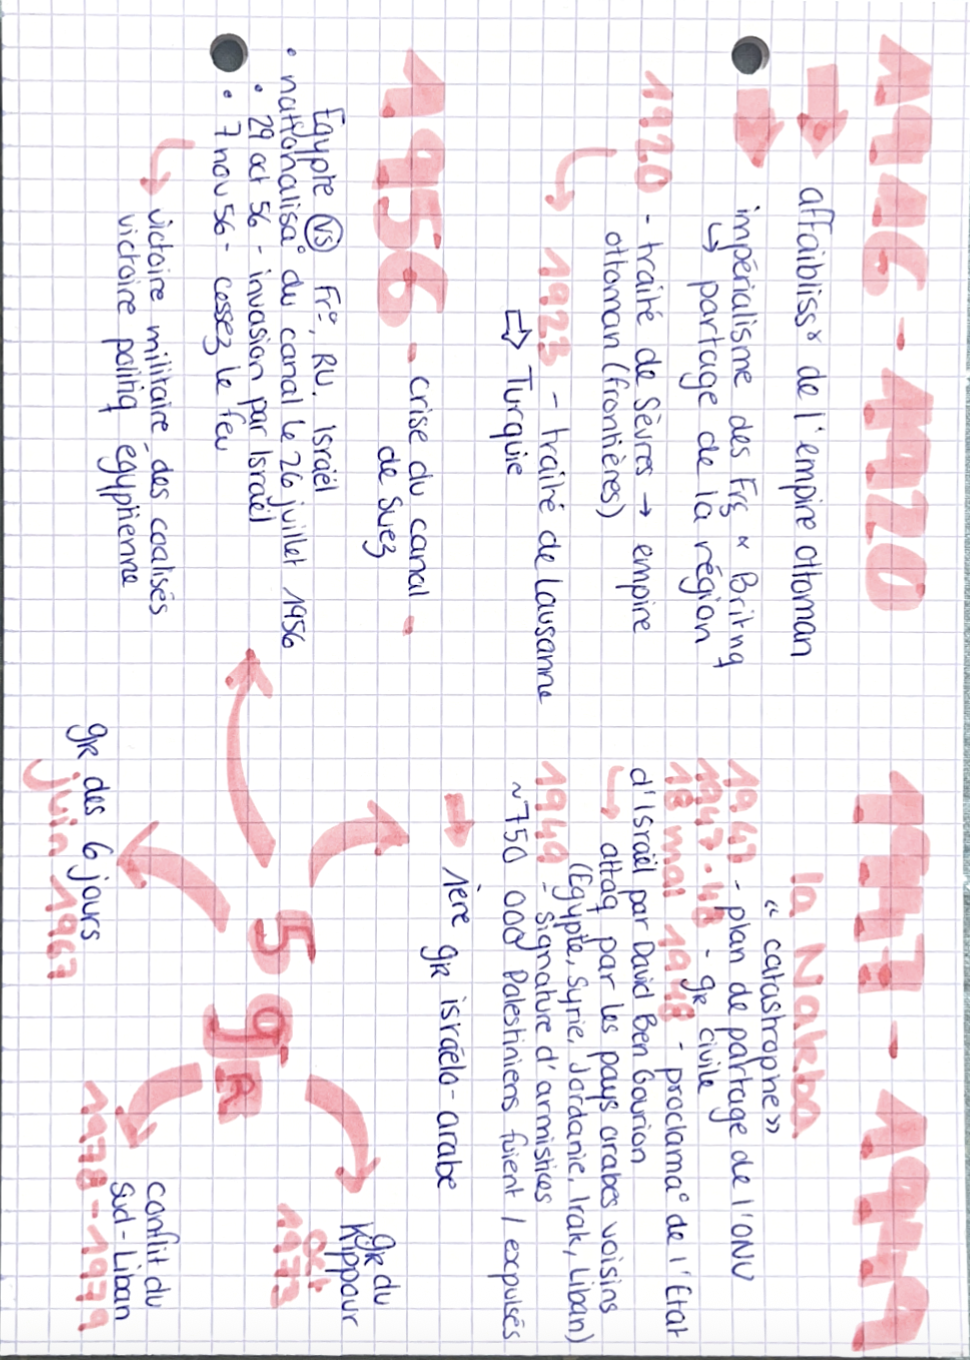 1916 - 1920
affaibliss^t de l'empire ottoman
impérialisme des Frç & Britnq
↳ partage de la région
1920 - traité de Sèvres → empire
ottoman (frontières)
1923 - traité de Lausanne
⇨ Turquie
1956 - crise du canal -
de Suez
Egypte VS Frce, RU, Israël
• nationalisa° du canal le 26 juillet 1956
• 29 oct 56 - invasion par Israël
• 7 nov 56 - cessez le feu
victoire militaire des coalisés
victoire politiq égyptienne
1947 - 1949
la Nakba
« catastrophe »
1947 - plan de partage de l'ONU
1947-48 - gR civile
18 mai 1948 - proclama° de l'Etat
d'Israël par David Ben Gourion
attaq par les pays arabes voisins
(Egypte, Syrie, Jordanie, Irak, Liban)
1949 - signature d'armistices
~750 000 Palestiniens fuient / expulsés
1ère gR israélo-arabe
5 gR
gR des 6 jours
juin 1967
gR du
Kippour
oct
1973
conflit du
Sud-Liban
1978-1979